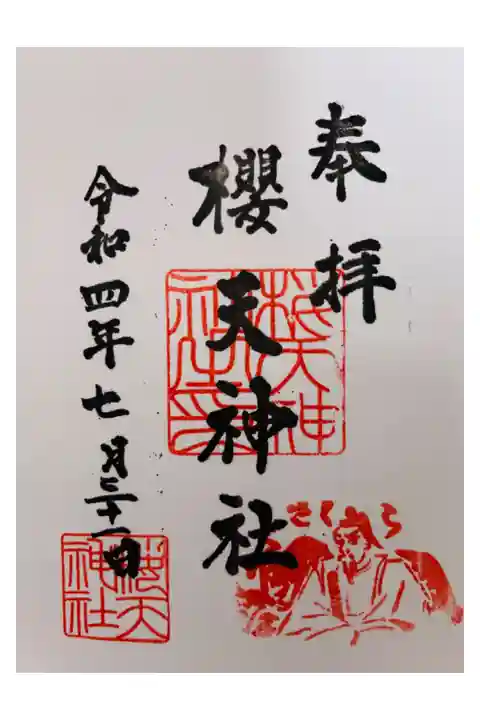 奉拝
櫻天神社
令和四年七月二十一日
さくら
櫻天神社